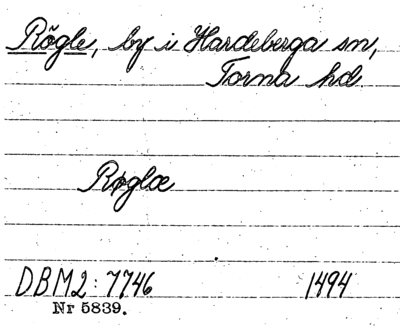 Rögle, by i Hardeberga sn,
Torna hd
Røglæ
DBM2: 7746 1494
Nr 5839.